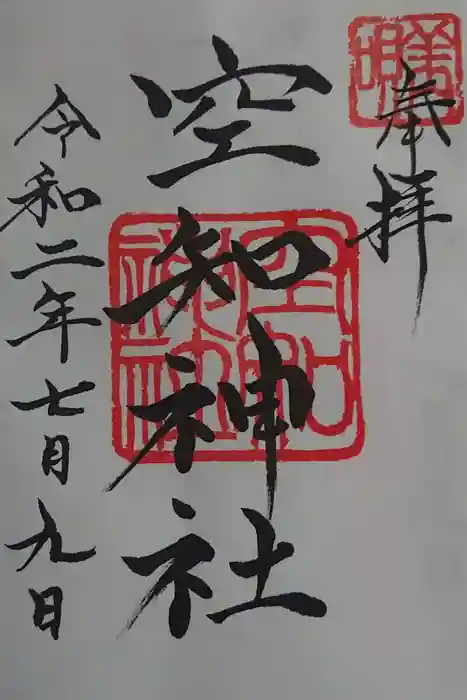 奉拝
空知神社
令和二年七月九日
空知
神社
美
唄